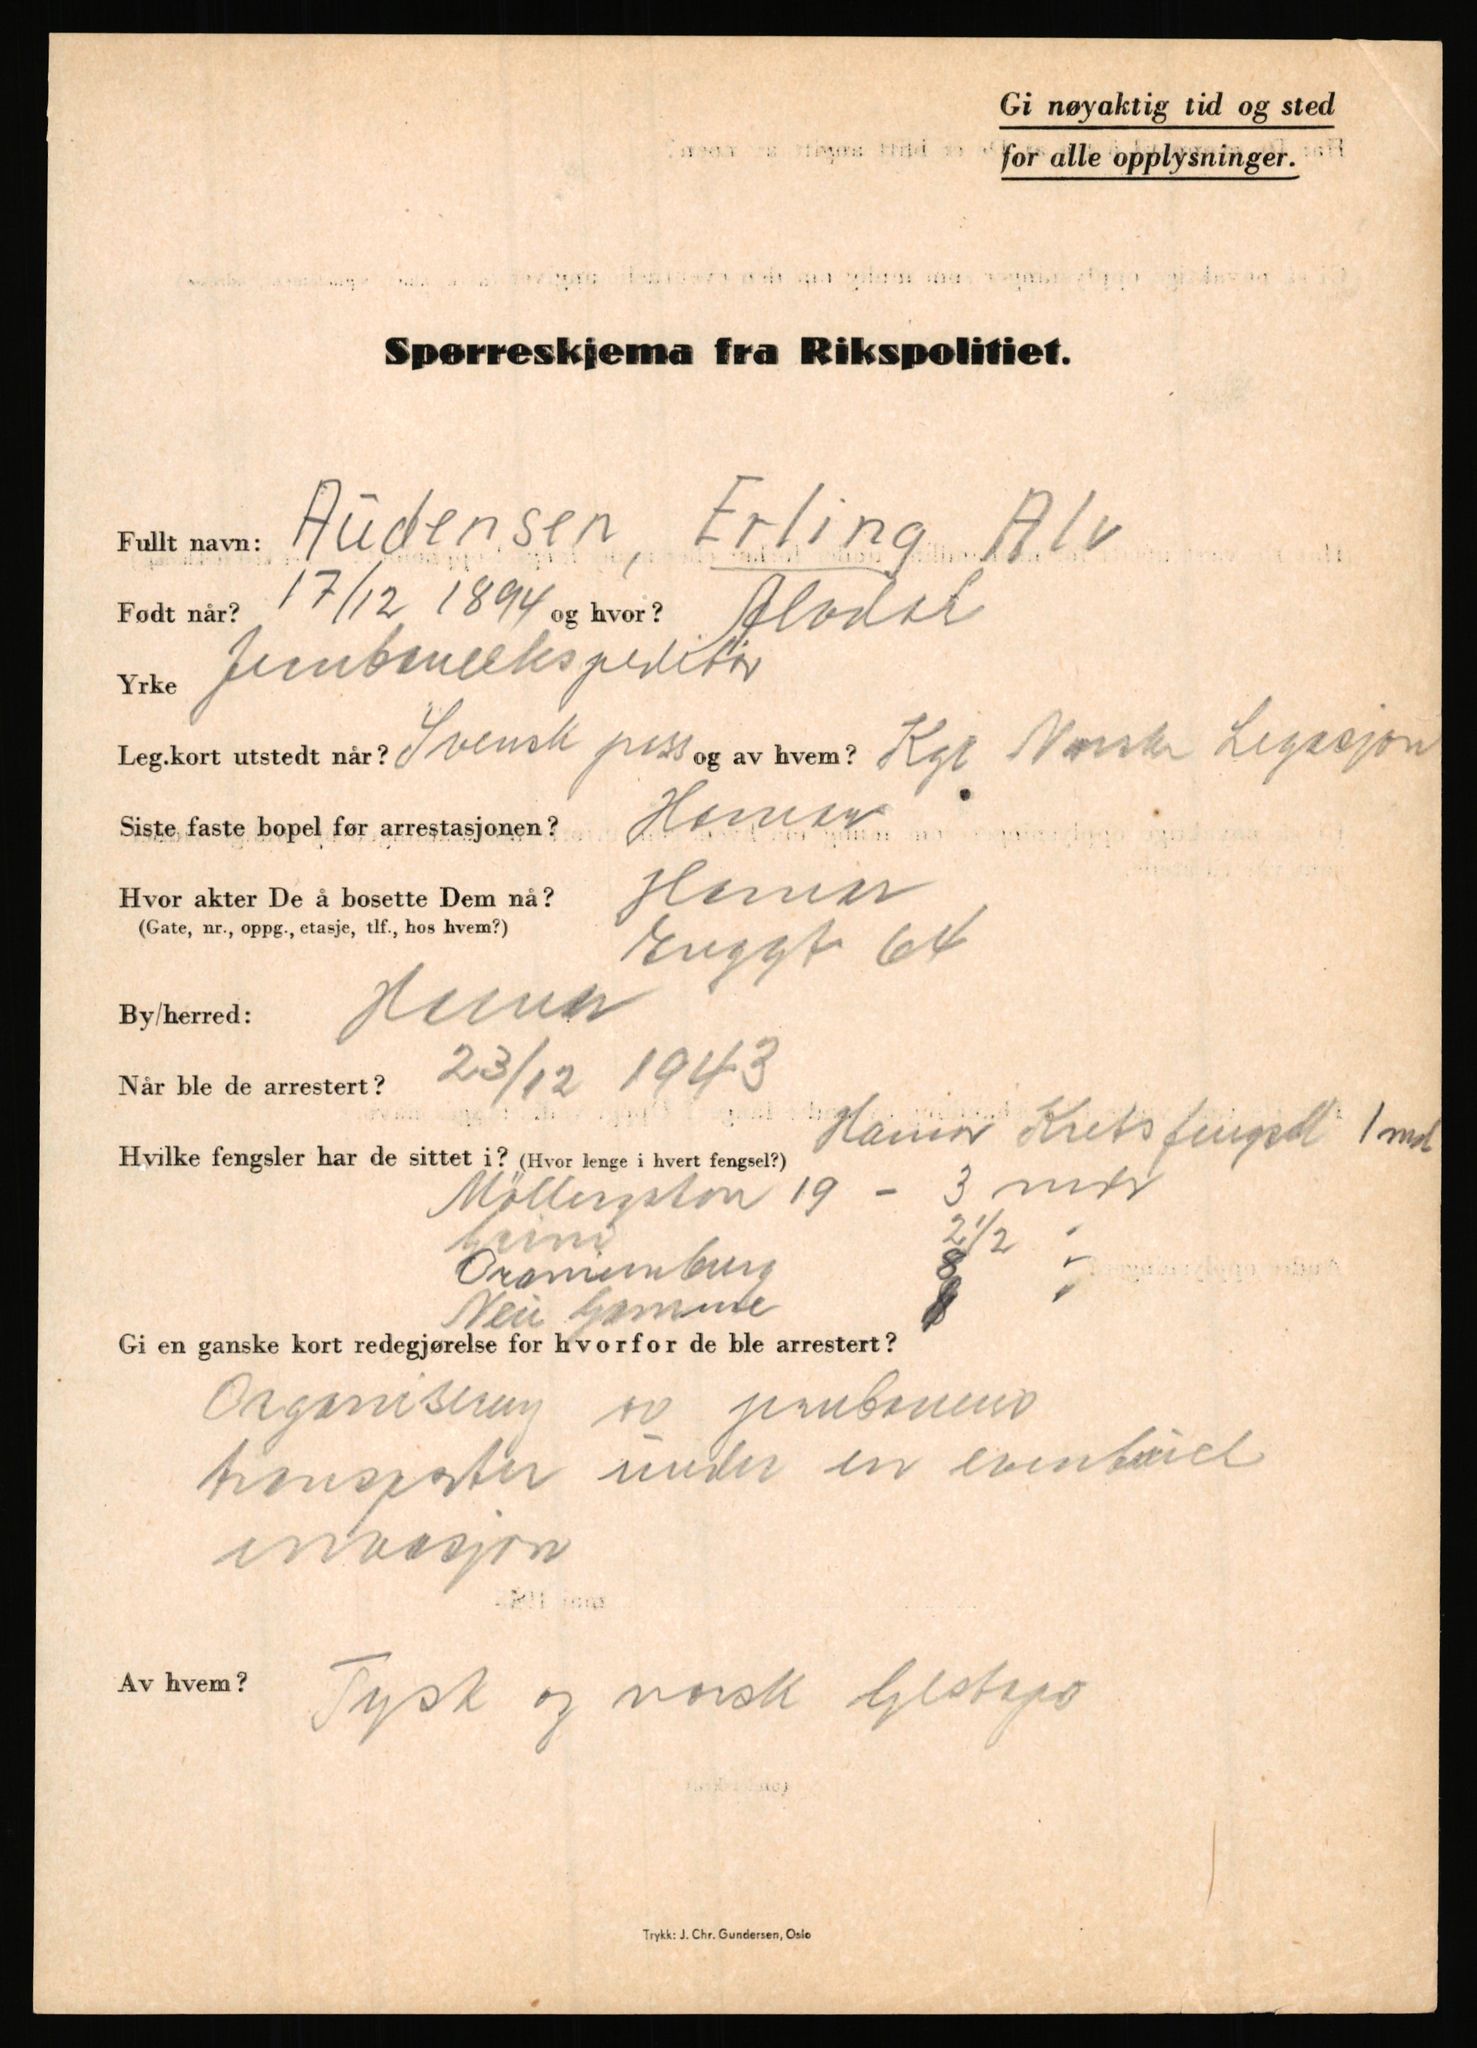 Gi nøyaktig tid og sted
for alle opplysninger.
Spørreskjema fra Rikspolitiet.
Fullt navn: Aüdensen, Erling Alv
Født når? 17/12 1894 og hvor? Alvdal
Yrke Jernbaneekspeditør
Leg.kort utstedt når? Svensk pass og av hvem? Kgl Norsk Legasjon
Siste faste bopel før arrestasjonen? Hamar
Hvor akter De å bosette Dem nå? Hamar
(Gate, nr., oppg., etasje, tlf., hos hvem?) 64
By/herred: Hamar
Når ble de arrestert? 23/12 1943
Hvilke fengsler har de sittet i? (Hvor lenge i hvert fengsel?) Hamar Kretsfengsel 1 md
Möllergaton 19 - 3 mdr
Grini 2 1/2 "
Oranienburg 8 "
Neue Gamme "
Gi en ganske kort redegjørelse for hvorfor de ble arrestert?
Organisering av jernbanens
transporter ünder en eventüel
invasjon
Av hvem? Tysk og norsk Gestapo
Trykk: J. Chr. Gundersen, Oslo